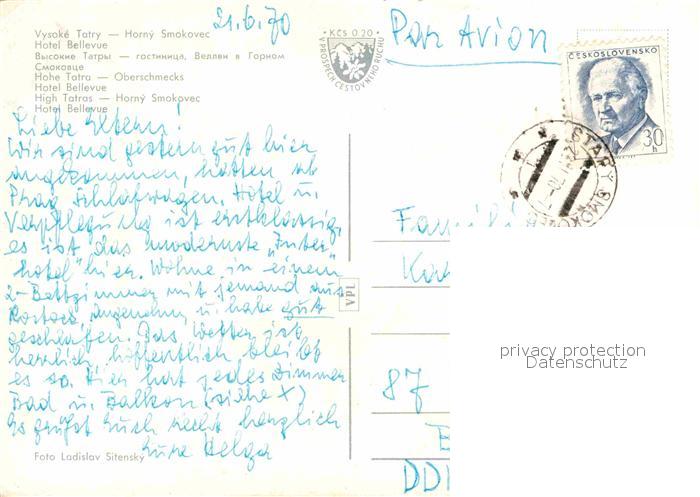 Vysoké Tatry — Horný Smokovec
Hotel Bellevue
Высокие Татры — гостиница, Веллви в Горном
Смоковце
Hohe Tatra — Oberschmecks
Hotel Bellevue
High Tatras — Horný Smokovec
Hotel Bellevue
21.6.70
KČS 0.20
V PROSPECH CESTOVNÉHO RUCHU
Par Avion
ČESKOSLOVENSKO
30h
STARÝ SMOKOVEC
Liebe Eltern!
Wir sind gestern gut hier
angekommen, hatten ab
Prag Schlafwagen. Hotel u.
Verpflegung ist erstklassig,
es ist das modernste "Inter-
hotel" hier. Wohne in einem
2-Bettzimmer mit jemand aus
Rostock, angenehm u. habe gut
geschlafen. Das Wetter ist
herrlich, hoffentlich bleibt
es so. Hier hat jedes Zimmer
Bad u. Balkon (siehe X)
Es grüßt Euch recht herzlich
Eure Helga
Foto Ladislav Sitenský
VPL
Famili
Ka
87
DD
privacy protection
Datenschutz